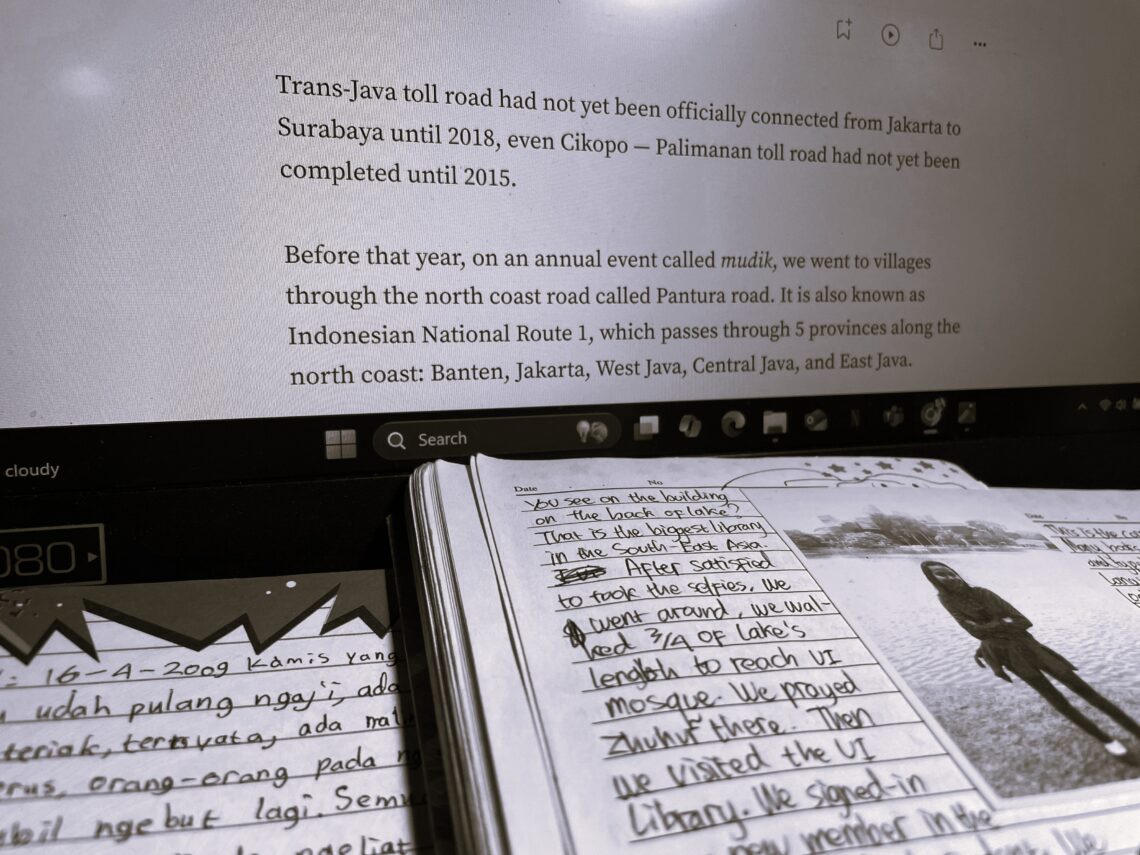 Trans-Java toll road had not yet been officially connected from Jakarta to
Surabaya until 2018, even Cikopo — Palimanan toll road had not yet been
completed until 2015.
Before that year, on an annual event called mudik, we went to villages
through the north coast road called Pantura road. It is also known as
Indonesian National Route 1, which passes through 5 provinces along the
north coast: Banten, Jakarta, West Java, Central Java, and East Java.
cloudy
Search
080
16-4-2009 Kamis yang
udah pulang ngaji, ada
teriak, ternyata, ada
orang-orang pada
ngebut lagi.
ngeliat
Date No
You see on the building
on the back of lake?
That is the biggest library
in the South-East Asia.
After satisfied
to took the selfies, we
went around, we wal-
ked 3/4 of lake's
length to reach UI
mosque. We prayed
Zhuhur there. Then
we visited the UI
Library. We signed-in
new member in the
This is the